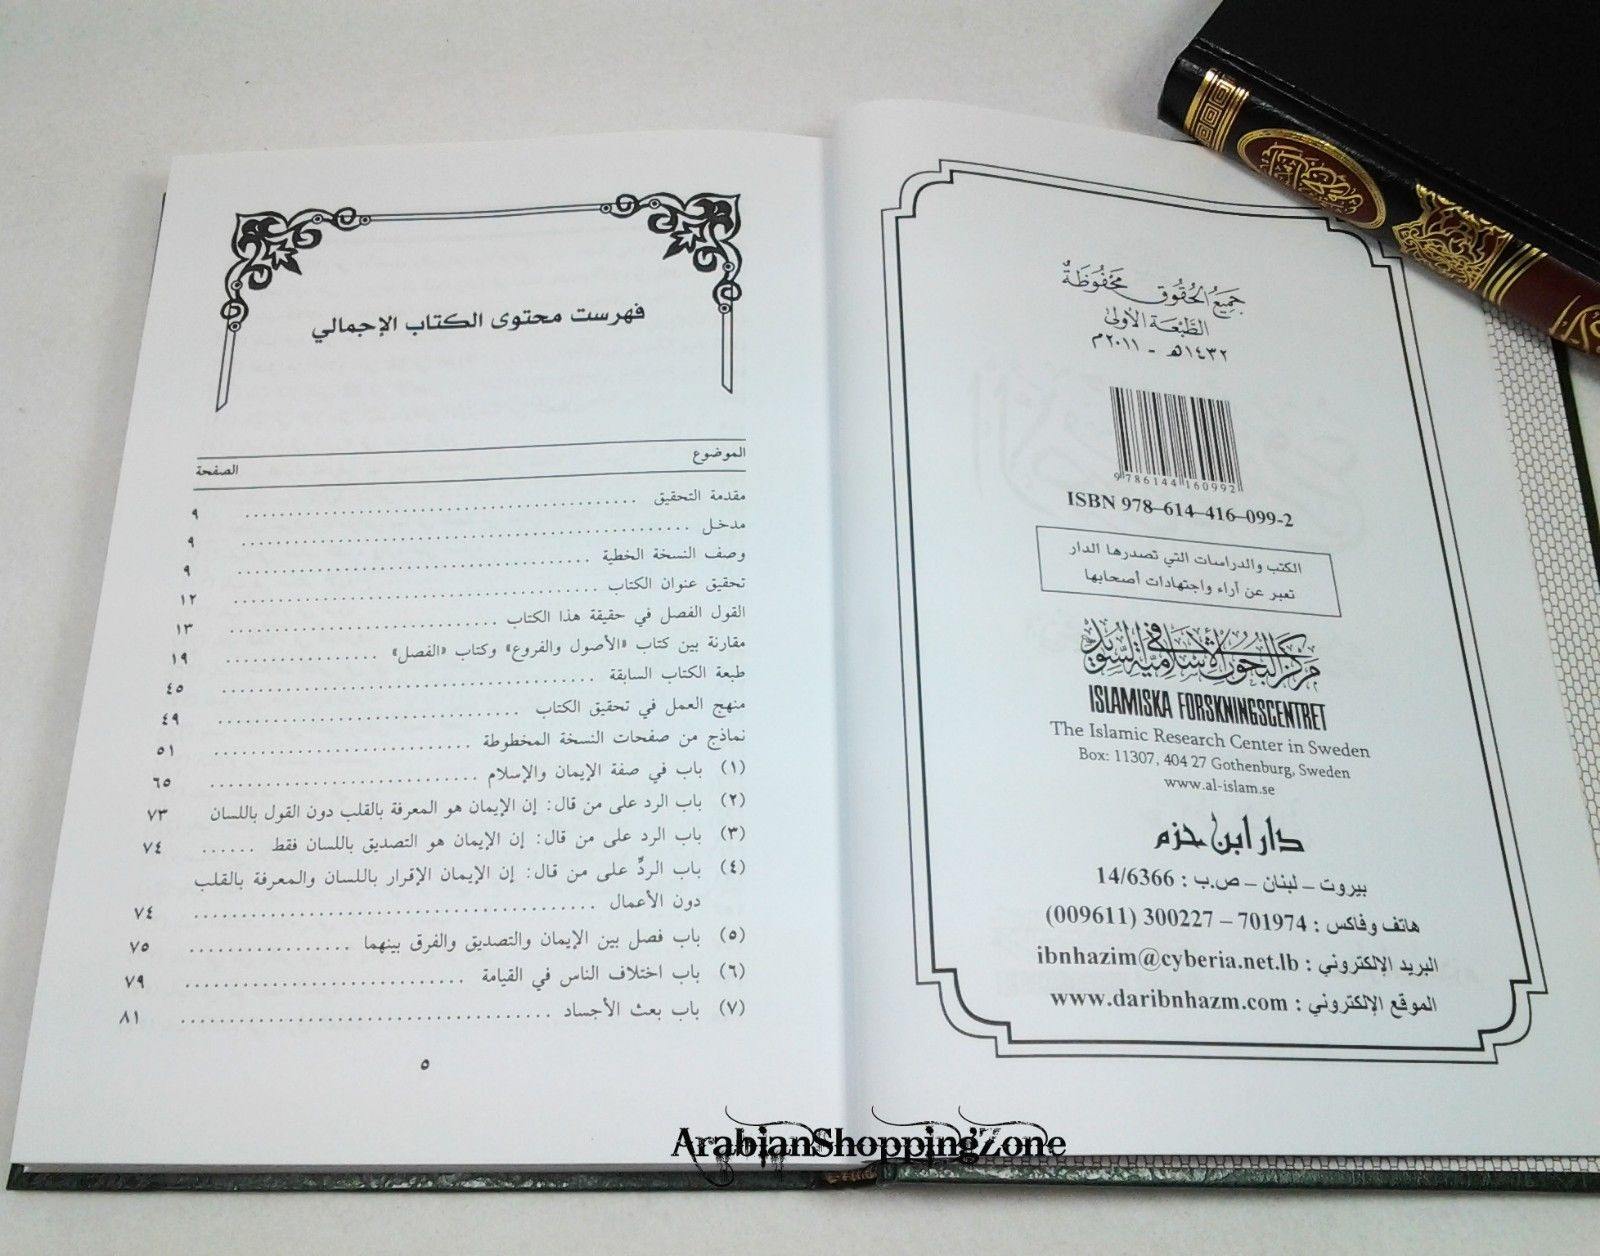 جَمِيْعُ الحُقُوق مَحْفُوظَةٌ
الطَّبْعَة الأولى
١٤٣٢هـ - ٢٠١١م
9 786144 160992
ISBN 978-614-416-099-2
الكتب والدراسات التي تصدرها الدار
تعبر عن آراء واجتهادات أصحابها
مركز البحوث الإسلامية في السويد
ISLAMISKA FORSKNINGSCENTRET
The Islamic Research Center in Sweden
Box: 11307, 404 27 Gothenburg, Sweden
www.al-islam.se
دار ابن حزم
بيروت - لبنان - ص.ب : 14/6366
هاتف وفاكس : 701974 - 300227 (009611)
البريد الإلكتروني : ibnhazim@cyberia.net.lb
الموقع الإلكتروني : www.daribnhazm.com
فهرست محتوى الكتاب الإجمالي
الموضوع الصفحة
مقدمة التحقيق ........ ٩
مدخل ........ ٩
وصف النسخة الخطية ........ ٩
تحقيق عنوان الكتاب ........ ١٢
القول الفصل في حقيقة هذا الكتاب ........ ١٣
مقارنة بين كتاب «الأصول والفروع» وكتاب «الفصل» ........ ١٩
طبعة الكتاب السابقة ........ ٤٥
منهج العمل في تحقيق الكتاب ........ ٤٩
نماذج من صفحات النسخة المخطوطة ........ ٥١
(١) باب في صفة الإيمان والإسلام ........ ٦٥
(٢) باب الرد على من قال: إن الإيمان هو المعرفة بالقلب دون القول باللسان ٧٣
(٣) باب الرد على من قال: إن الإيمان هو التصديق باللسان فقط ...... ٧٤
(٤) باب الردِّ على من قال: إن الإيمان الإقرار باللسان والمعرفة بالقلب
دون الأعمال ........ ٧٤
(٥) باب فصل بين الإيمان والتصديق والفرق بينهما ........ ٧٥
(٦) باب اختلاف الناس في القيامة ........ ٧٩
(٧) باب بعث الأجساد ........ ٨١
٥
ArabianShoppingZone